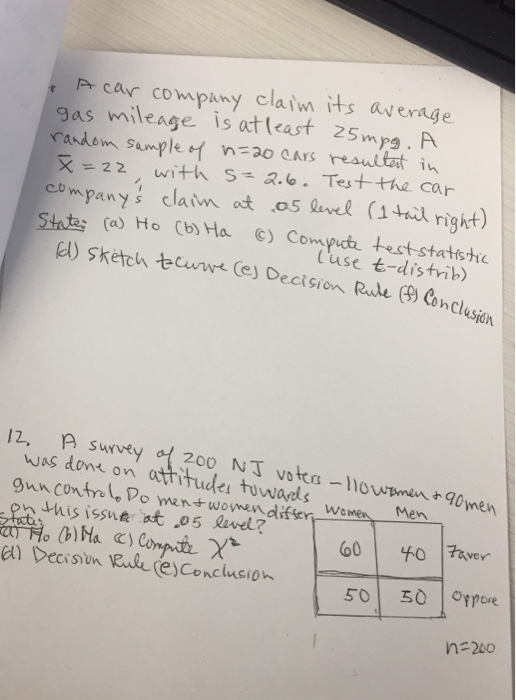 A car company claim its average
gas mileage is at least 25mpg. A
random sample of n=20 cars resulted in
x̄ = 22, with S= 2.6. Test the car
company's claim at .05 level (1 tail right)
State: (a) Ho (b) Ha (c) Compute test-statistic
(use t-distrib)
(d) Sketch t curve (e) Decision Rule (f) Conclusion
12. A survey of 200 NJ voters - 110 women + 90 men
was done on attitudes towards
gun control. Do men + women differ
on this issue at .05 level?
State:
(a) Ho (b) Ha (c) Compute X²
(d) Decision Rule (e) Conclusion
Women Men
60 40 Favor
50 50 Oppose
n=200